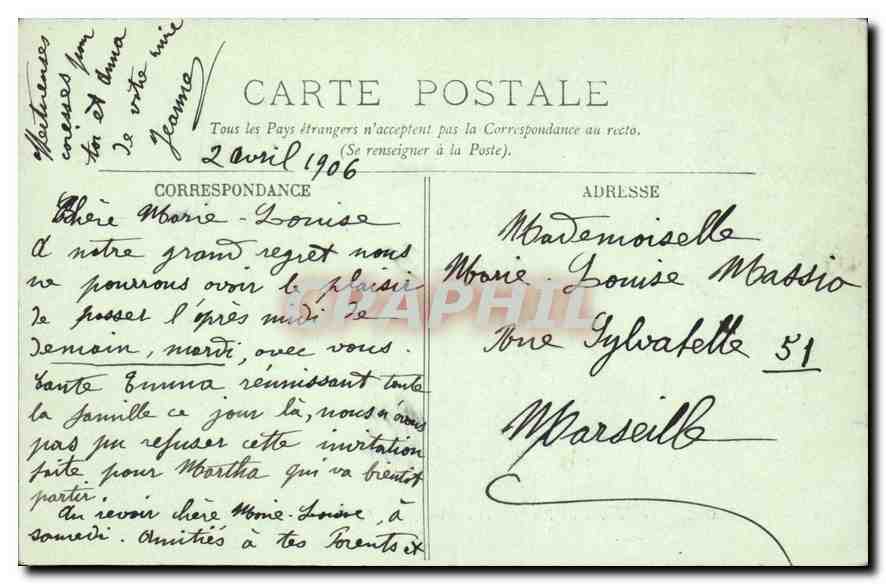 CARTE POSTALE
Tous les Pays étrangers n'acceptent pas la Correspondance au recto.
(Se renseigner à la Poste).
2 avril 1906
CORRESPONDANCE
Chère Marie-Louise
A notre grand regret nous
ne pourrons avoir le plaisir
de passer l'après midi de
demain, mardi, avec vous.
Tante Emma réunissant toute
la famille ce jour là, nous n'avons
pas pu refuser cette invitation
faite pour Martha qui va bientôt
partir.
Au revoir chère Marie-Louise, à
samedi. Amitiés à tes Parents et
caresses pour
toi et Anna
de votre amie
Jeanne
ADRESSE
Mademoiselle
Marie-Louise Massio
Rue Sylvabelle 51
Marseille
CPAPHIL